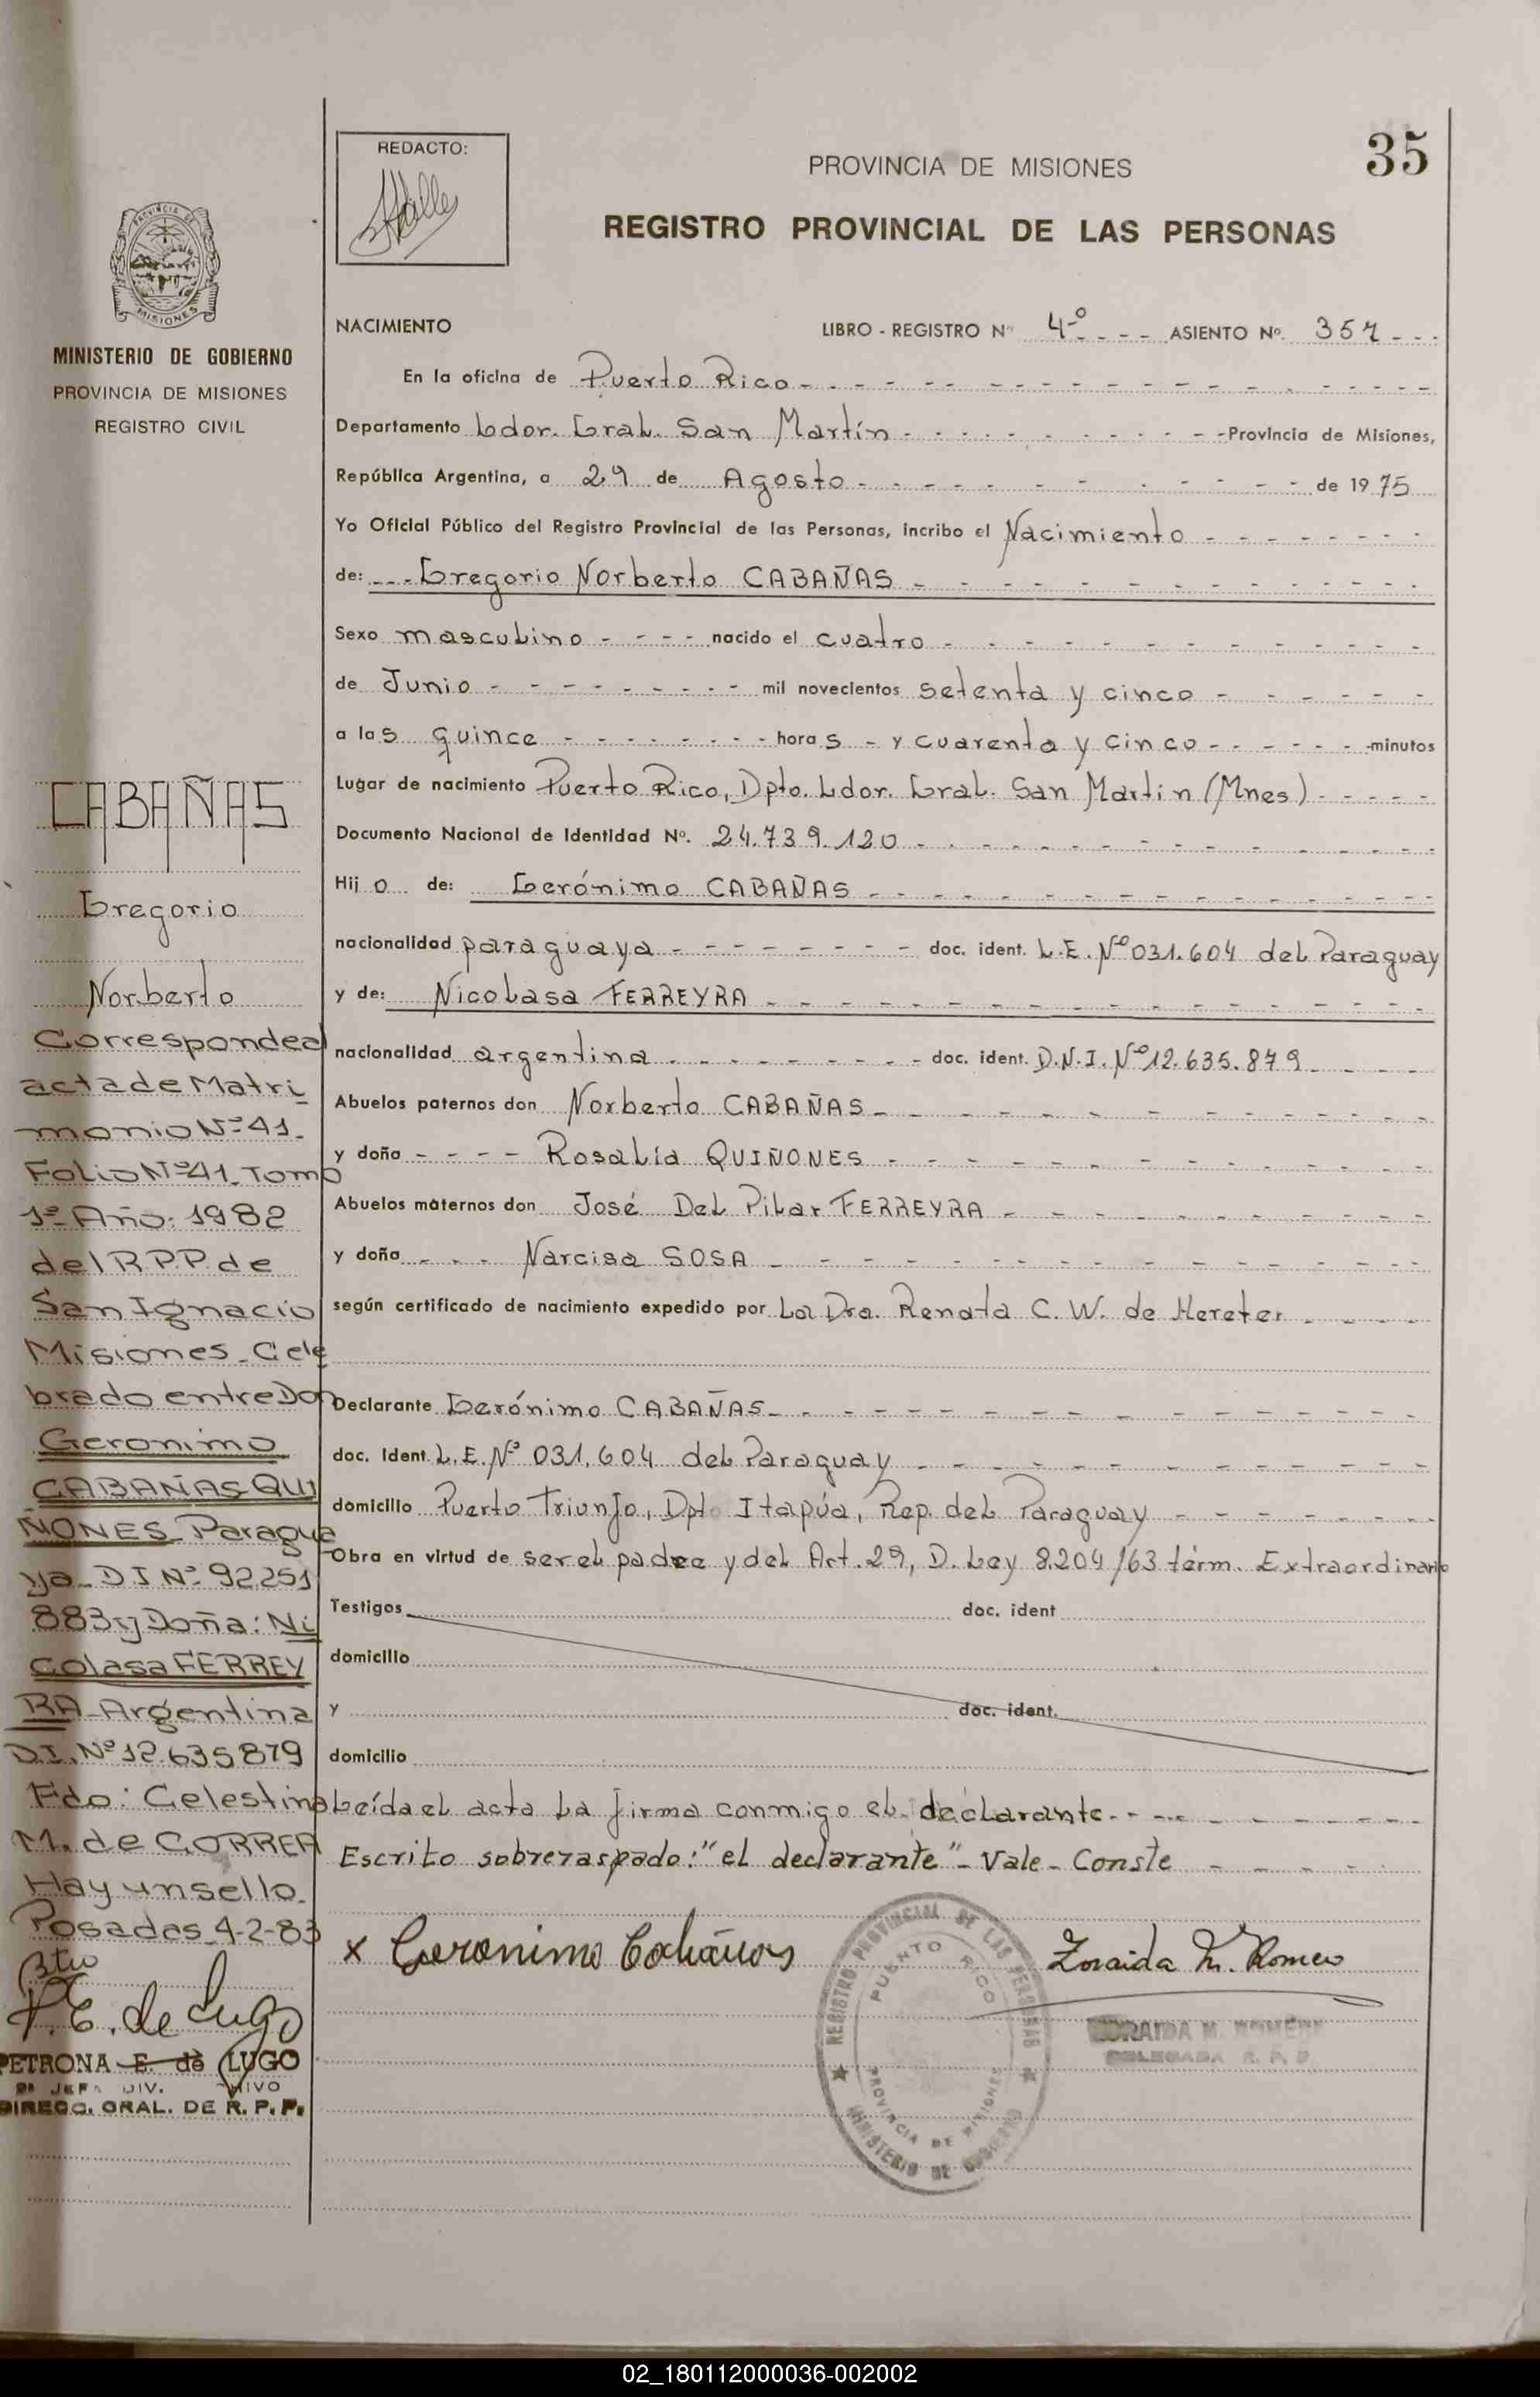 35
REDACTO:
PROVINCIA DE MISIONES
REGISTRO PROVINCIAL DE LAS PERSONAS
PROVINCIA DE
MISIONES
MINISTERIO DE GOBIERNO
PROVINCIA DE MISIONES
REGISTRO CIVIL
NACIMIENTO LIBRO - REGISTRO Nº 4º - - - ASIENTO Nº. 357 - - -
En la oficina de Puerto Rico
Departamento Ldor. Gral. San Martín - Provincia de Misiones,
República Argentina, a 29 de Agosto - de 1975
Yo Oficial Público del Registro Provincial de las Personas, incribo el Nacimiento
de: Gregorio Norberto CABAÑAS
Sexo masculino - nacido el cuatro
de Junio - mil novecientos setenta y cinco
a las quince - horas - y cuarenta y cinco - minutos
Lugar de nacimiento Puerto Rico, Dpto. Ldor. Gral. San Martín (Mnes)
Documento Nacional de Identidad Nº. 24.739.120
Hijo de: Gerónimo CABAÑAS
nacionalidad paraguaya - doc. ident. L.E. Nº 031.604 del Paraguay
y de: Nicolasa FERREYRA
nacionalidad argentina - doc. ident. D.N.I. Nº 12.635.879
Abuelos paternos don Norberto CABAÑAS
y doña Rosalía QUIÑONES
Abuelos maternos don José Del Pilar FERREYRA
y doña Narcisa SOSA
según certificado de nacimiento expedido por La Dra. Renata C. W. de Hereter
Declarante Gerónimo CABAÑAS
doc. Ident. L.E. Nº 031.604 del Paraguay
domicilio Puerto Triunfo, Dpto Itapúa, Rep. del Paraguay
Obra en virtud de ser el padre y del Art. 29, D. Ley 8.204/63 térm. Extraordinario
Testigos doc. ident
domicilio
y doc. ident.
domicilio
Leída el acta la firma conmigo el declarante
Escrito sobreraspado: "el declarante" - Vale - Conste
x Geronimo Cabañas
Zoraida M. Romero
ZORAIDA M. ROMERO
DELEGADA R. P. P.
REGISTRO PROVINCIAL DE LAS PERSONAS
PUERTO RICO
PROVINCIA DE MISIONES
MINISTERIO DE GOBIERNO
CABAÑAS
Gregorio
Norberto
Corresponde al
acta de Matri
monio Nº 41.
Folio Nº 41. Tomo
1º Año: 1982
del R.P.P. de
San Ignacio
Misiones. Cele
brado entre Don
Geronimo
CABAÑAS QUI
ÑONES Paragua
ya - D I Nº 92.251
883 y Doña: Ni
colasa FERREY
RA - Argentina
D.I. Nº 12.635879
Fdo: Celestina
M. de CORREA
Hay un sello.
Posadas 4-2-83
P. E. de Lugo
PETRONA E. de LUGO
JEFA DIV.
DIRECC. GRAL. DE R. P. P.
02_180112000036-002002